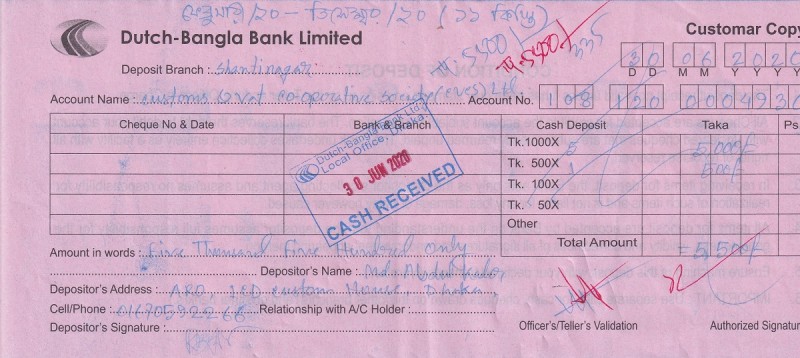 ফেব্রুয়ারি/২০ - ডিসেম্বর/২০ (১১ কিস্তি)
Dutch-Bangla Bank Limited
Customar Copy
Tk. 5500/-
Deposit Branch : Shantinagar
30 06 2020
D D M M Y Y Y Y
Account Name : Customs & Vat co-operative society Ltd.
Account No. 108 120 000493
Cheque No & Date Bank & Branch Cash Deposit Taka Ps
Tk.1000X 5 5,000/-
Tk. 500X 1 500/-
Tk. 100X
Tk. 50X
Other
Total Amount = 5,500/-
Dutch-Bangla Bank Ltd.
Local Office, Dhaka.
30 JUN 2020
CASH RECEIVED
Amount in words : Five Thousand Five Hundred Only
Depositor's Name : Md. Abdul
Depositor's Address : ARO, ICD, custom House, Dhaka
Cell/Phone : Relationship with A/C Holder :
Depositor's Signature :
Officer's/Teller's Validation
Authorized Signatur